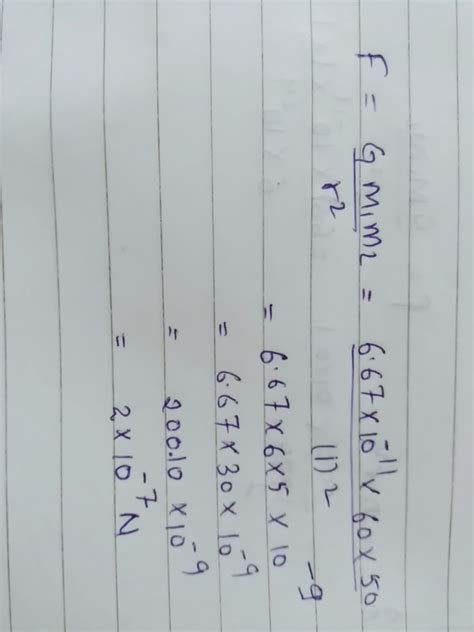 F = G m₁m₂ / r² = 6.67 x 10⁻¹¹ x 60 x 50 / (1)²
= 6.67 x 6 x 5 x 10⁻⁹
= 6.67 x 30 x 10⁻⁹
= 200.10 x 10⁻⁹
= 2 x 10⁻⁷ N